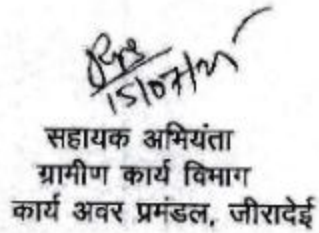 15/07/21
सहायक अभियंता
ग्रामीण कार्य विभाग
कार्य अवर प्रमंडल, जीरादेई